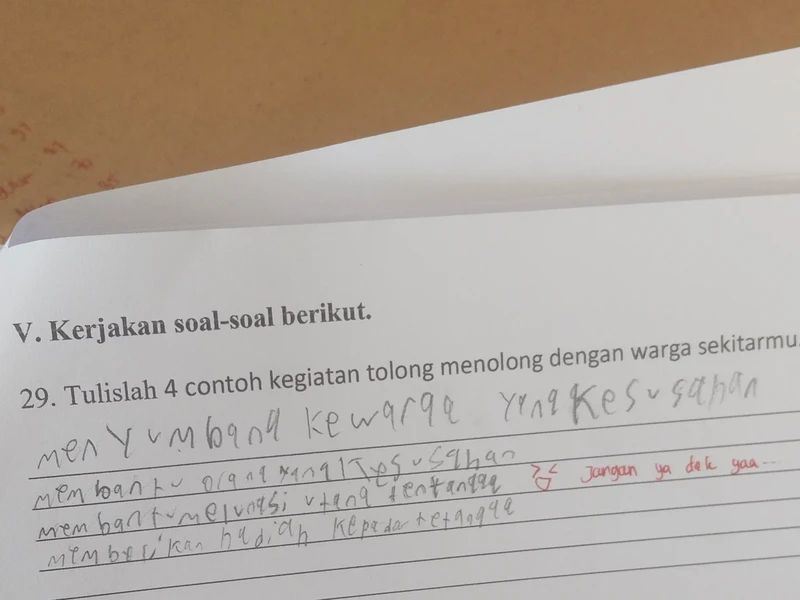 V. Kerjakan soal-soal berikut.
29. Tulislah 4 contoh kegiatan tolong menolong dengan warga sekitarmu.
menyumbang kewarga yang kesusahan
membantu orang yang kesusahan
membantu melunasi utang tentangga
Jangan ya dek yaa...
memberikan hadiah kepada tetangga